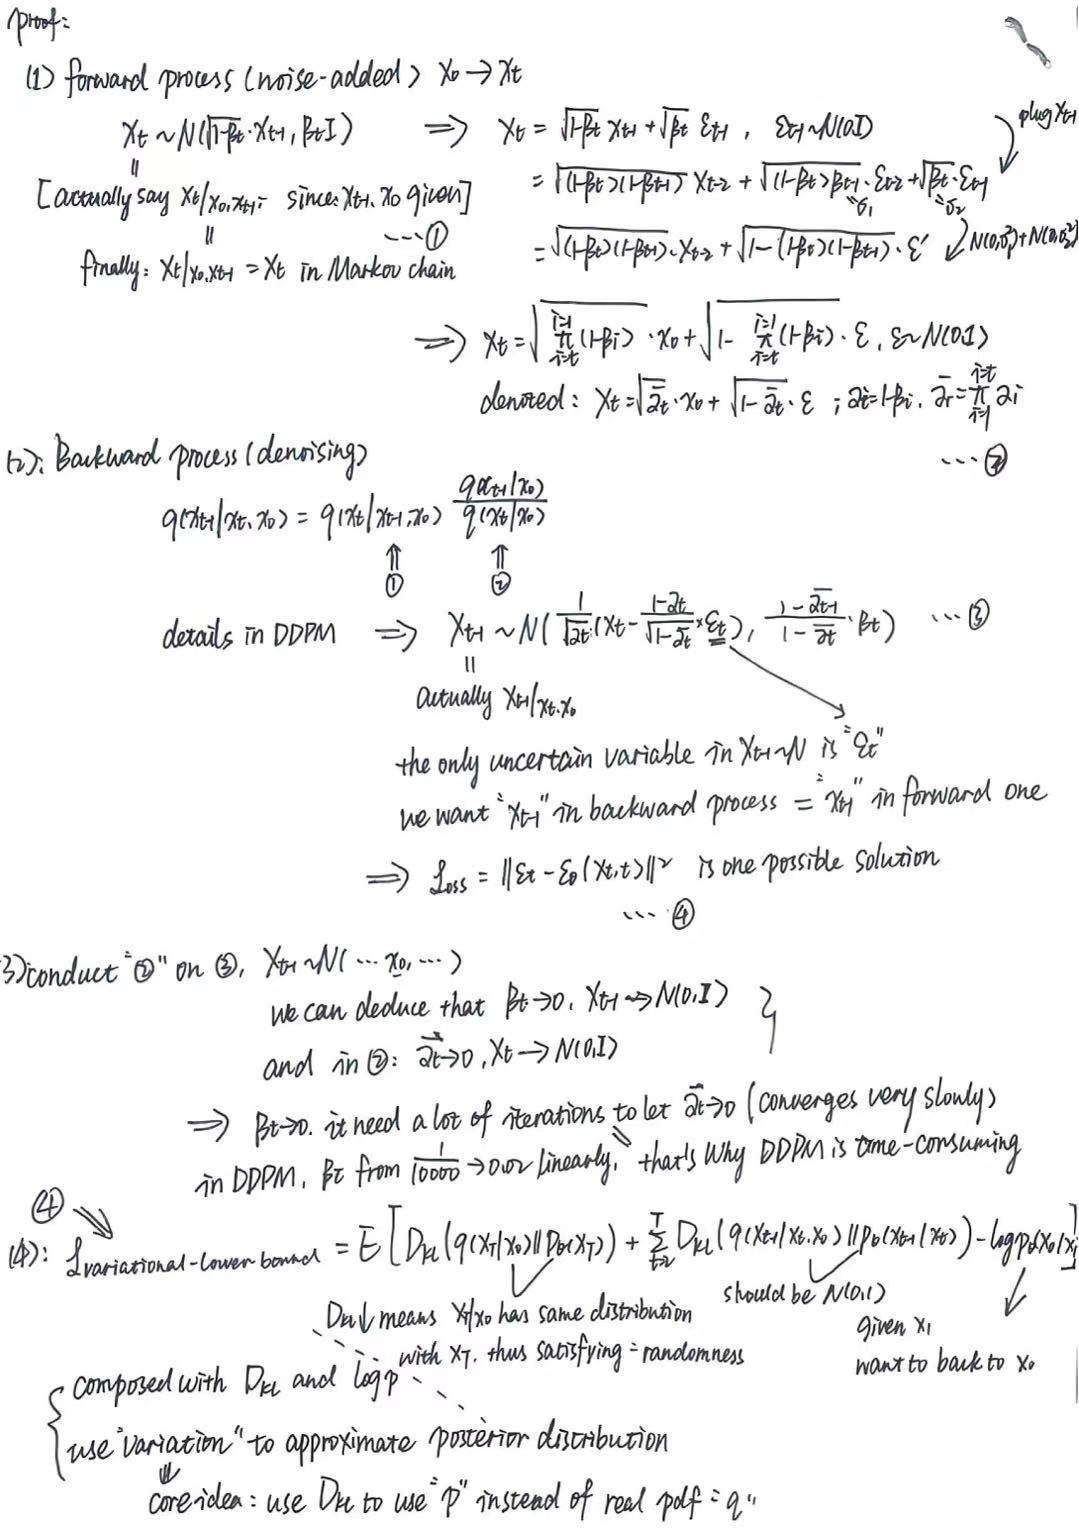 proof:
(1) forward process (noise-added) x₀ → xₜ
xₜ ~ N(√(1-βₜ)·xₜ₋₁, βₜI) ⇒ xₜ = √(1-βₜ) xₜ₋₁ + √βₜ εₜ₋₁, εₜ₋₁~N(0,I)
plug xₜ₋₁
= √((1-βₜ)(1-βₜ₋₁)) xₜ₋₂ + √((1-βₜ)βₜ₋₁)·εₜ₋₂ + √βₜ·εₜ₋₁
"σ₁ "σ₂
[actually say xₜ/x₀,xₜ₋₁, since xₜ₋₁, x₀ given]
... ①
= √((1-βₜ)(1-βₜ₋₁))·xₜ₋₂ + √(1-(1-βₜ)(1-βₜ₋₁))·ε' N(0,σ₁²)+N(0,σ₂²)
finally: xₜ/x₀,xₜ₋₁ = xₜ in Markov chain
⇒ xₜ = √(π_{i=t}^{i=1}(1-βᵢ))·x₀ + √(1-π_{i=t}^{i=1}(1-βᵢ))·ε, ε~N(0,I)
denoted: xₜ = √ᾱₜ·x₀ + √(1-ᾱₜ)·ε ; αᵢ=1-βᵢ, ᾱᵢ=π_{i=1}^{i=t} αᵢ
... ②
(2): Backward process (denoising)
q(xₜ₋₁|xₜ,x₀) = q(xₜ|xₜ₋₁,x₀) q(xₜ₋₁|x₀)/q(xₜ|x₀)
⇑ ⇑
① ②
details in DDPM ⇒ xₜ₋₁ ~ N(1/√αₜ (xₜ - (1-αₜ)/√(1-ᾱₜ) * εₜ), (1-ᾱₜ₋₁)/(1-ᾱₜ)·βₜ) ... ③
actually xₜ₋₁/xₜ,x₀
the only uncertain variable in xₜ₋₁~N is "εₜ"
we want "xₜ₋₁" in backward process = "xₜ₋₁" in forward one
⇒ Loss = ||εₜ - εθ(xₜ,t)||² is one possible solution
... ④
3) conduct "②" on ③, xₜ₋₁~N(... x₀, ...)
we can deduce that βₜ→0, xₜ₋₁ → N(0,I) }
and in ②: ᾱₜ→0, xₜ → N(0,I)
⇒ βₜ→0. it need a lot of iterations to let ᾱₜ→0 (converges very slowly)
in DDPM, βₜ from 1/10000 → 0.02 linearly, that's why DDPM is time-consuming
④
(4): L variational-lower bound = E[D_KL(q(x_T|x₀)||pθ(x_T)) + Σ_{t=2}^{T} D_KL(q(xₜ₋₁|xₜ,x₀)||pθ(xₜ₋₁|xₜ)) - log pθ(x₀|x₁)]
should be N(0,1)
D_KL↓ means x_T/x₀ has same distribution
given x₁
with x_T. thus satisfying = randomness
want to back to x₀
{ composed with D_KL and log p
use "variation" to approximate posterior distribution
core idea: use D_KL to use "p" instead of real pdf = q"